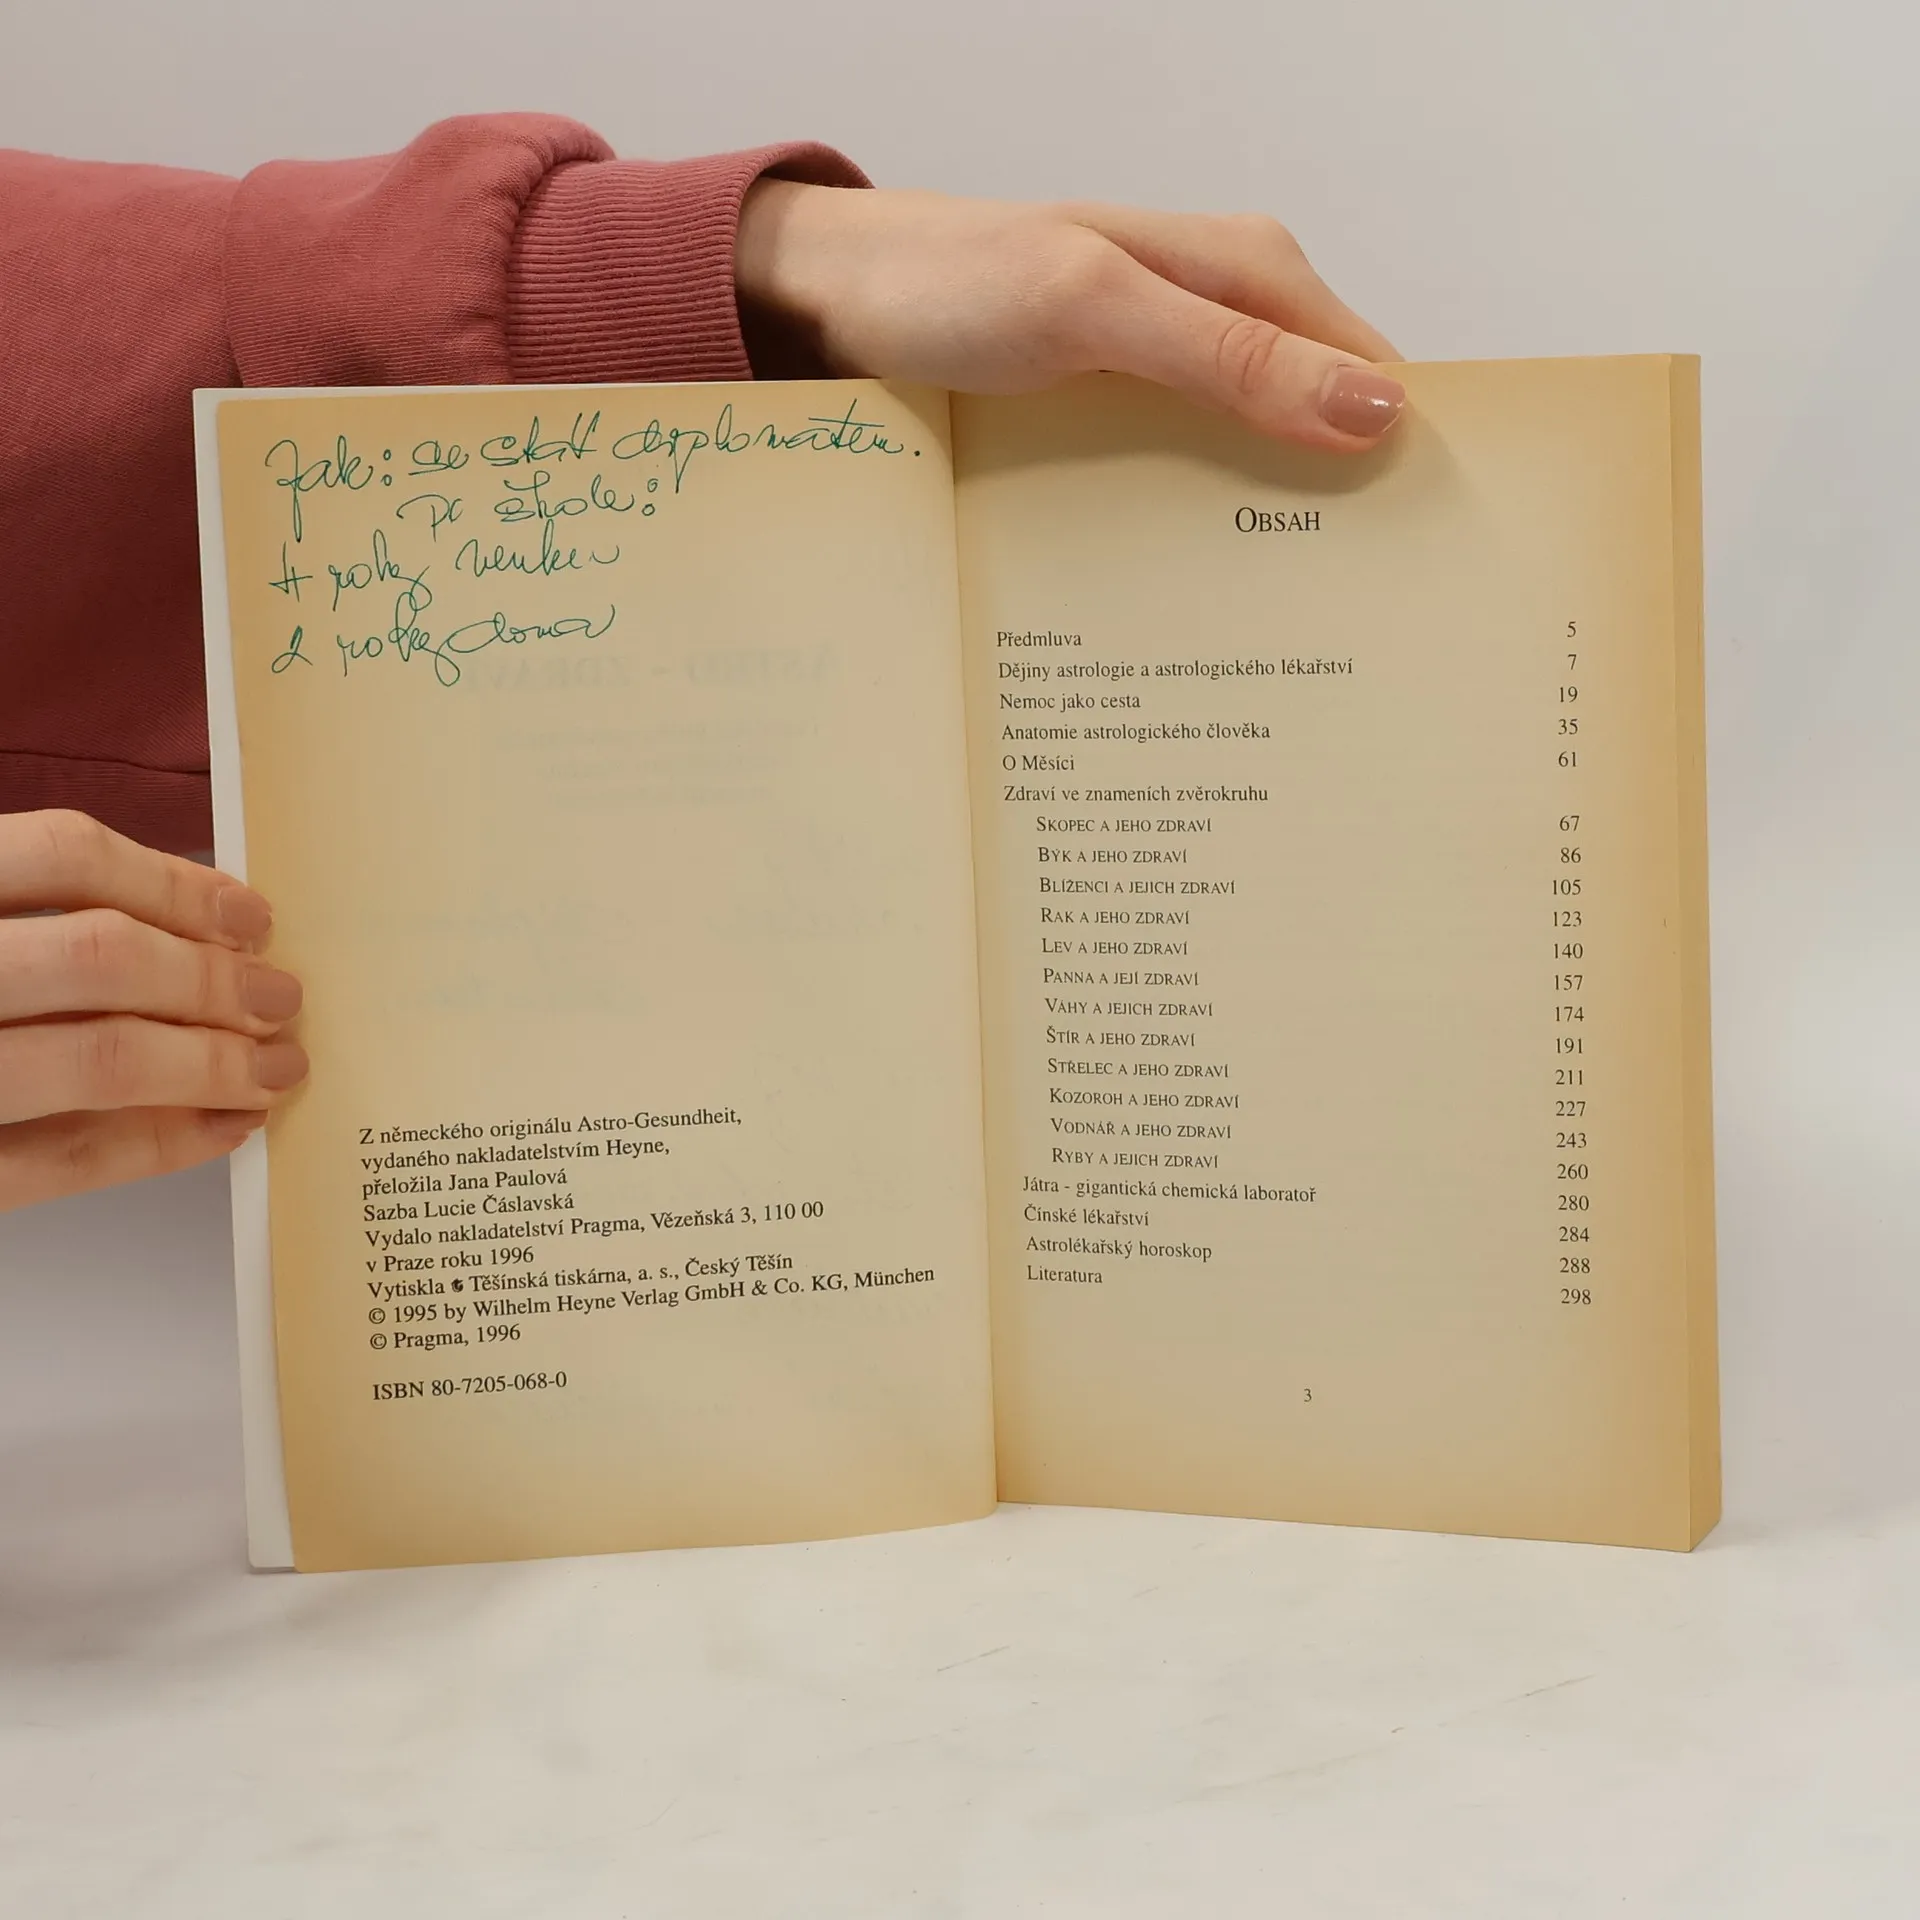 Jak: se stát diplomatem.
po škole:
4 roky venku
2 roky doma
Z německého originálu Astro-Gesundheit,
vydaného nakladatelstvím Heyne,
přeložila Jana Paulová
Sazba Lucie Čáslavská
Vydalo nakladatelství Pragma, Vězeňská 3, 110 00
v Praze roku 1996
Vytiskla Těšínská tiskárna, a. s., Český Těšín
© 1995 by Wilhelm Heyne Verlag GmbH & Co. KG, München
© Pragma, 1996
ISBN 80-7205-068-0
OBSAH
Předmluva 5
Dějiny astrologie a astrologického lékařství 7
Nemoc jako cesta 19
Anatomie astrologického člověka 35
O Měsíci 61
Zdraví ve znameních zvěrokruhu
SKOPEC A JEHO ZDRAVÍ 67
BÝK A JEHO ZDRAVÍ 86
BLÍŽENCI A JEJICH ZDRAVÍ 105
RAK A JEHO ZDRAVÍ 123
LEV A JEHO ZDRAVÍ 140
PANNA A JEJÍ ZDRAVÍ 157
VÁHY A JEJICH ZDRAVÍ 174
ŠTÍR A JEHO ZDRAVÍ 191
STŘELEC A JEHO ZDRAVÍ 211
KOZOROH A JEHO ZDRAVÍ 227
VODNÁŘ A JEHO ZDRAVÍ 243
RYBY A JEJICH ZDRAVÍ 260
Játra - gigantická chemická laboratoř 280
Čínské lékařství 284
Astrolékařský horoskop 288
Literatura 298
3